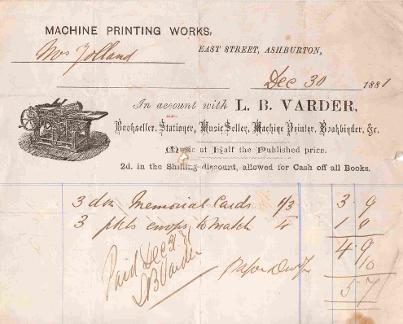 MACHINE PRINTING WORKS,
EAST STREET, ASHBURTON,
Mrs Tolland
Dec 30 1881
In account with L. B. VARDER,
Bookseller, Stationer, Music Seller, Machine Printer, Bookbinder, &c.
Music at Half the Published price.
2d. in the Shilling discount, allowed for Cash off all Books.
3 doz Memorial Cards 1/3 3 9
3 pkts envps to match 4 1 0
4 9
10
5 7
Paid Dec 31
L B Varder